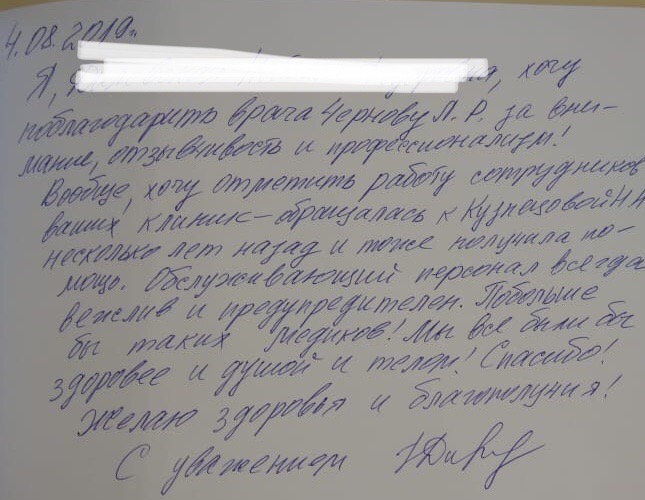 4.08.2019г.
Я, хочу
поблагодарить врача Чернову Л. Р. за вни-
мание, отзывчивость и профессионализм!
Вообще, хочу отметить работу сотрудников
ваших клиник - обращалась к Кузнецовой Н.Н.
несколько лет назад и тоже получила по-
мощь. Обслуживающий персонал всегда
вежлив и предупредителен. Побольше
бы таких медиков! Мы все были бы
здоровее и душой и телом! Спасибо!
Желаю здоровья и благополучия!
С уважением